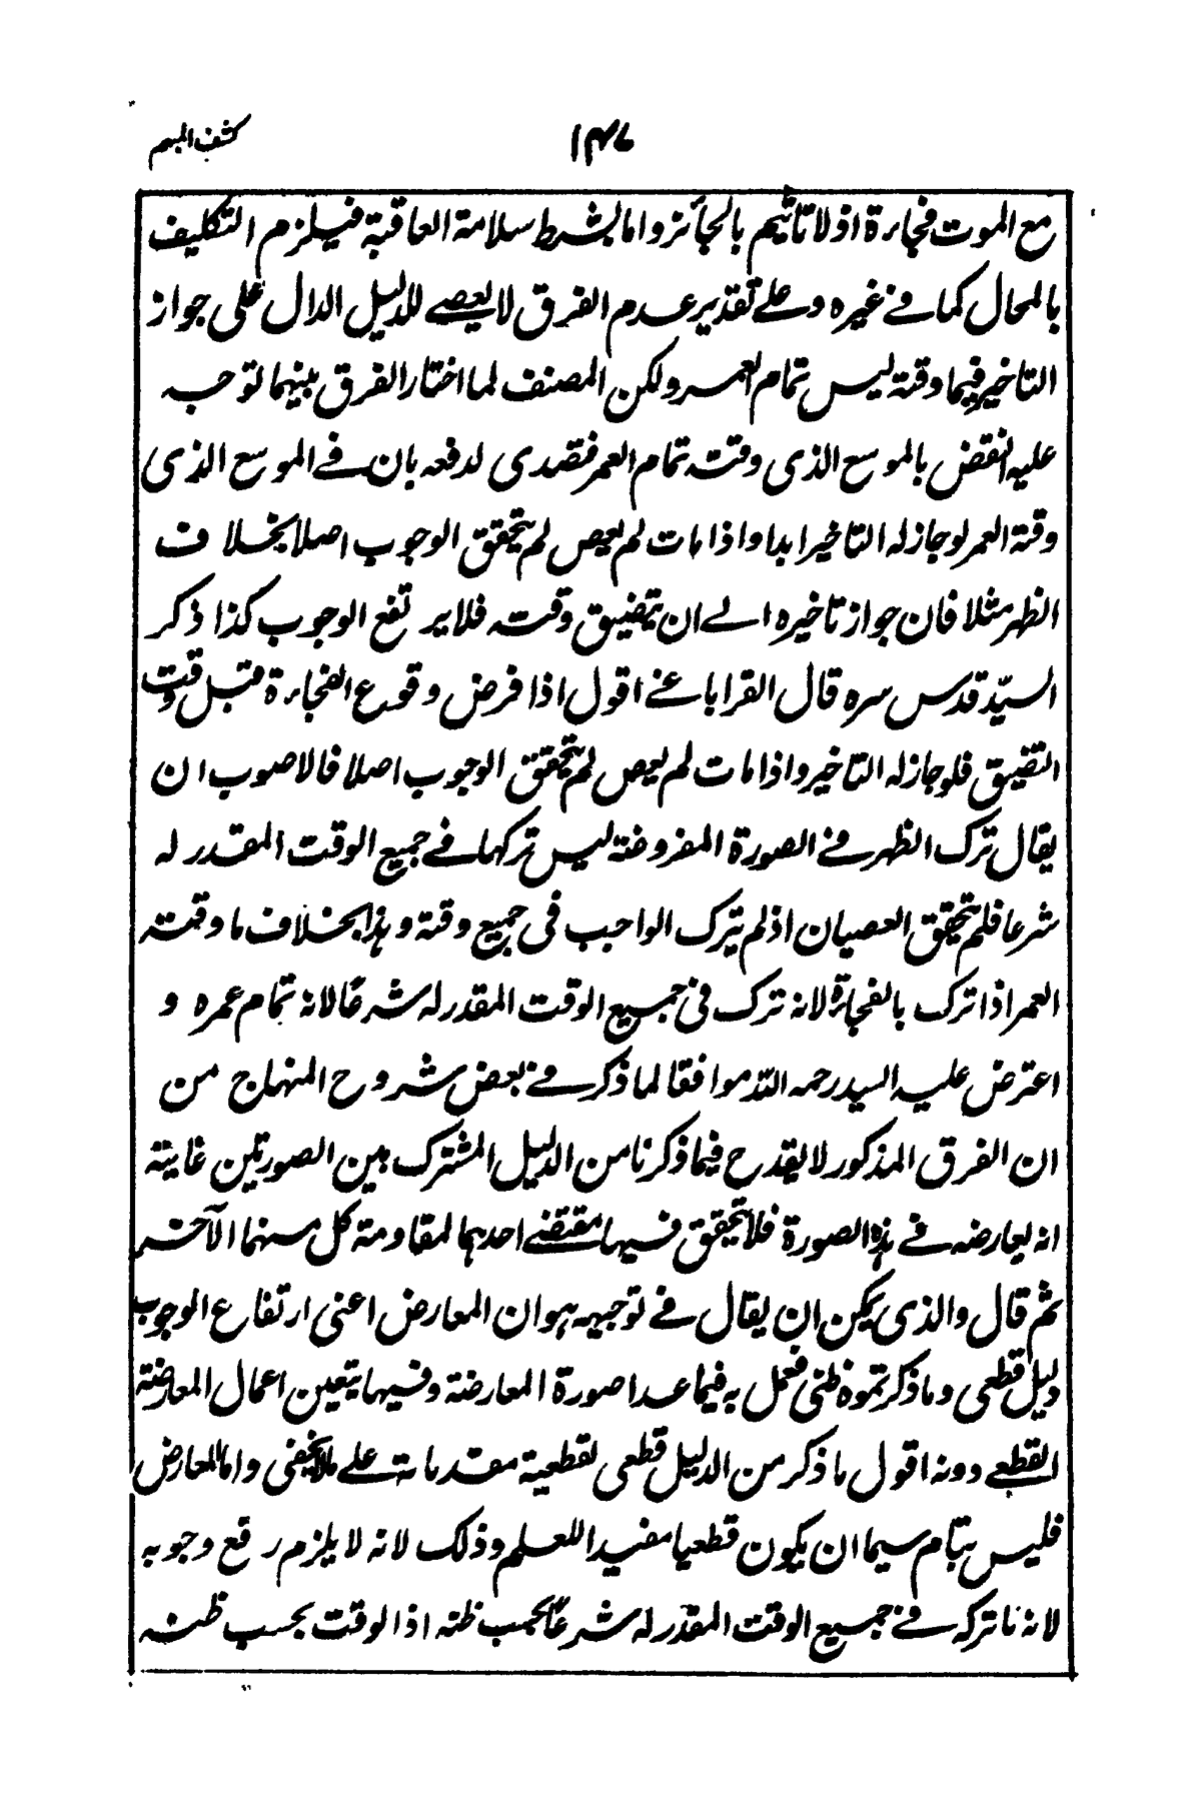 كشف المبهم
١٤٧
مع الموت فجاءة اذ لا تاثيم بالجائز واما بشرط سلامة العاقبة فيلزم التكليف
بالمحال كما في غيره وعلى تقدير عدم الفرق لا يعصے للدليل الدال على جواز
التاخير فيما وقته ليس تمام العمر ولكن المصنف لما اختار الفرق بينهما توجه
عليه النقض بالموسع الذى وقته تمام العمر فتصدى لدفعه بان فے الموسع الذى
وقته العمر لو جاز له التاخير ابدا واذا مات لم يعص لم يتحقق الوجوب اصلا بخلاف
الظهر مثلا فان جواز تاخيره الے ان يتضيق وقته فلا يرتفع الوجوب كذا ذكر
السيّد قدس سره قال القراباغے اقول اذا فرض وقوع الفجاءة قبل وقت
التضيق فلو جاز له التاخير واذا مات لم يعص لم يتحقق الوجوب اصلا فالاصوب ان
يقال ترك الظهر في الصورة المفروضة ليس تركها فے جميع الوقت المقدر له
شرعا فلم يتحقق العصيان اذ لم يترك الواجب فى جميع وقته وهذا بخلاف ما وقته
العمر اذا ترك بالفجاءة لانه ترك فى جميع الوقت المقدر له شرعًا لانه تمام عمره و
اعترض عليه السيد رحمه اللّه موافقا لما ذكر في بعض شروح المنهاج من
ان الفرق المذكور لا يقدح فيما ذكرنا من الدليل المشترك بين الصورتين غايته
انه يعارضه فے هذه الصورة فلا يتحقق فيها مقتضے احدهما لمقاومة كل منهما الآخر
ثم قال والذى يمكن ان يقال فے توجيهه هو ان المعارض اعنى ارتفاع الوجوب
دليل قطعى وما ذكرتموه ظنى فعمل به فيما عدا صورة المعارضة وفيها يتعين اعمال المعارضة
القطعے دونه اقول ما ذكر من الدليل قطعى لقطعية مقدماته علے ما لا يخفى واما المعارض
فليس بتام سيما ان يكون قطعيا مفيدا للعلم وذلك لانه لا يلزم رفع وجوبه
لانه ما تركه فے جميع الوقت المقدر له شرعًا بحسب ظنه اذ الوقت بحسب ظنه